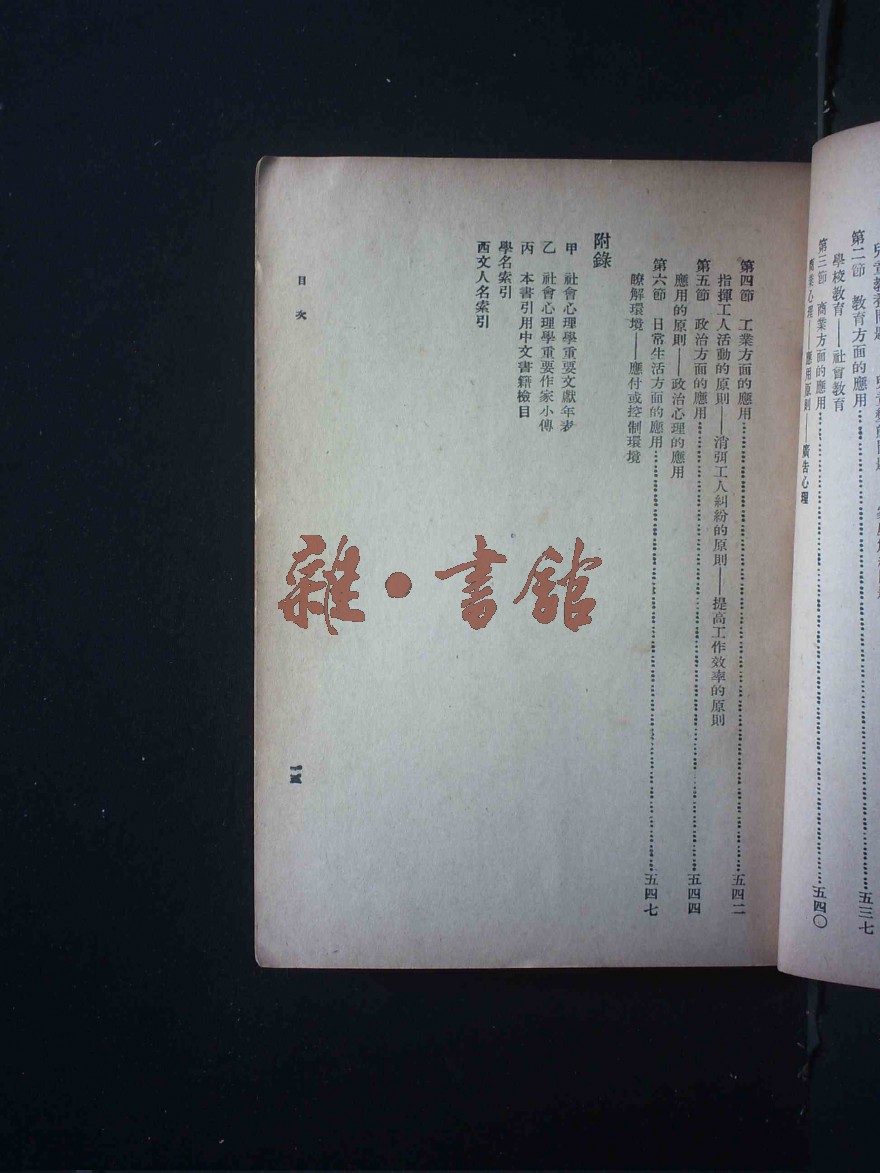 第二節 教育方面的應用……五三七
學校教育——社會教育
第三節 商業方面的應用……五四〇
商業心理——應用原則——廣告心理
第四節 工業方面的應用……五四二
指揮工人活動的原則——消弭工人糾紛的原則——提高工作效率的原則
第五節 政治方面的應用……五四四
應用的原則——政治心理的應用
第六節 日常生活方面的應用……五四七
瞭解環境——應付或控制環境
附錄
甲 社會心理學重要文獻年表
乙 社會心理學重要作家小傳
丙 本書引用中文書籍檢目
學名索引
西文人名索引
目次
十五
雜·書館